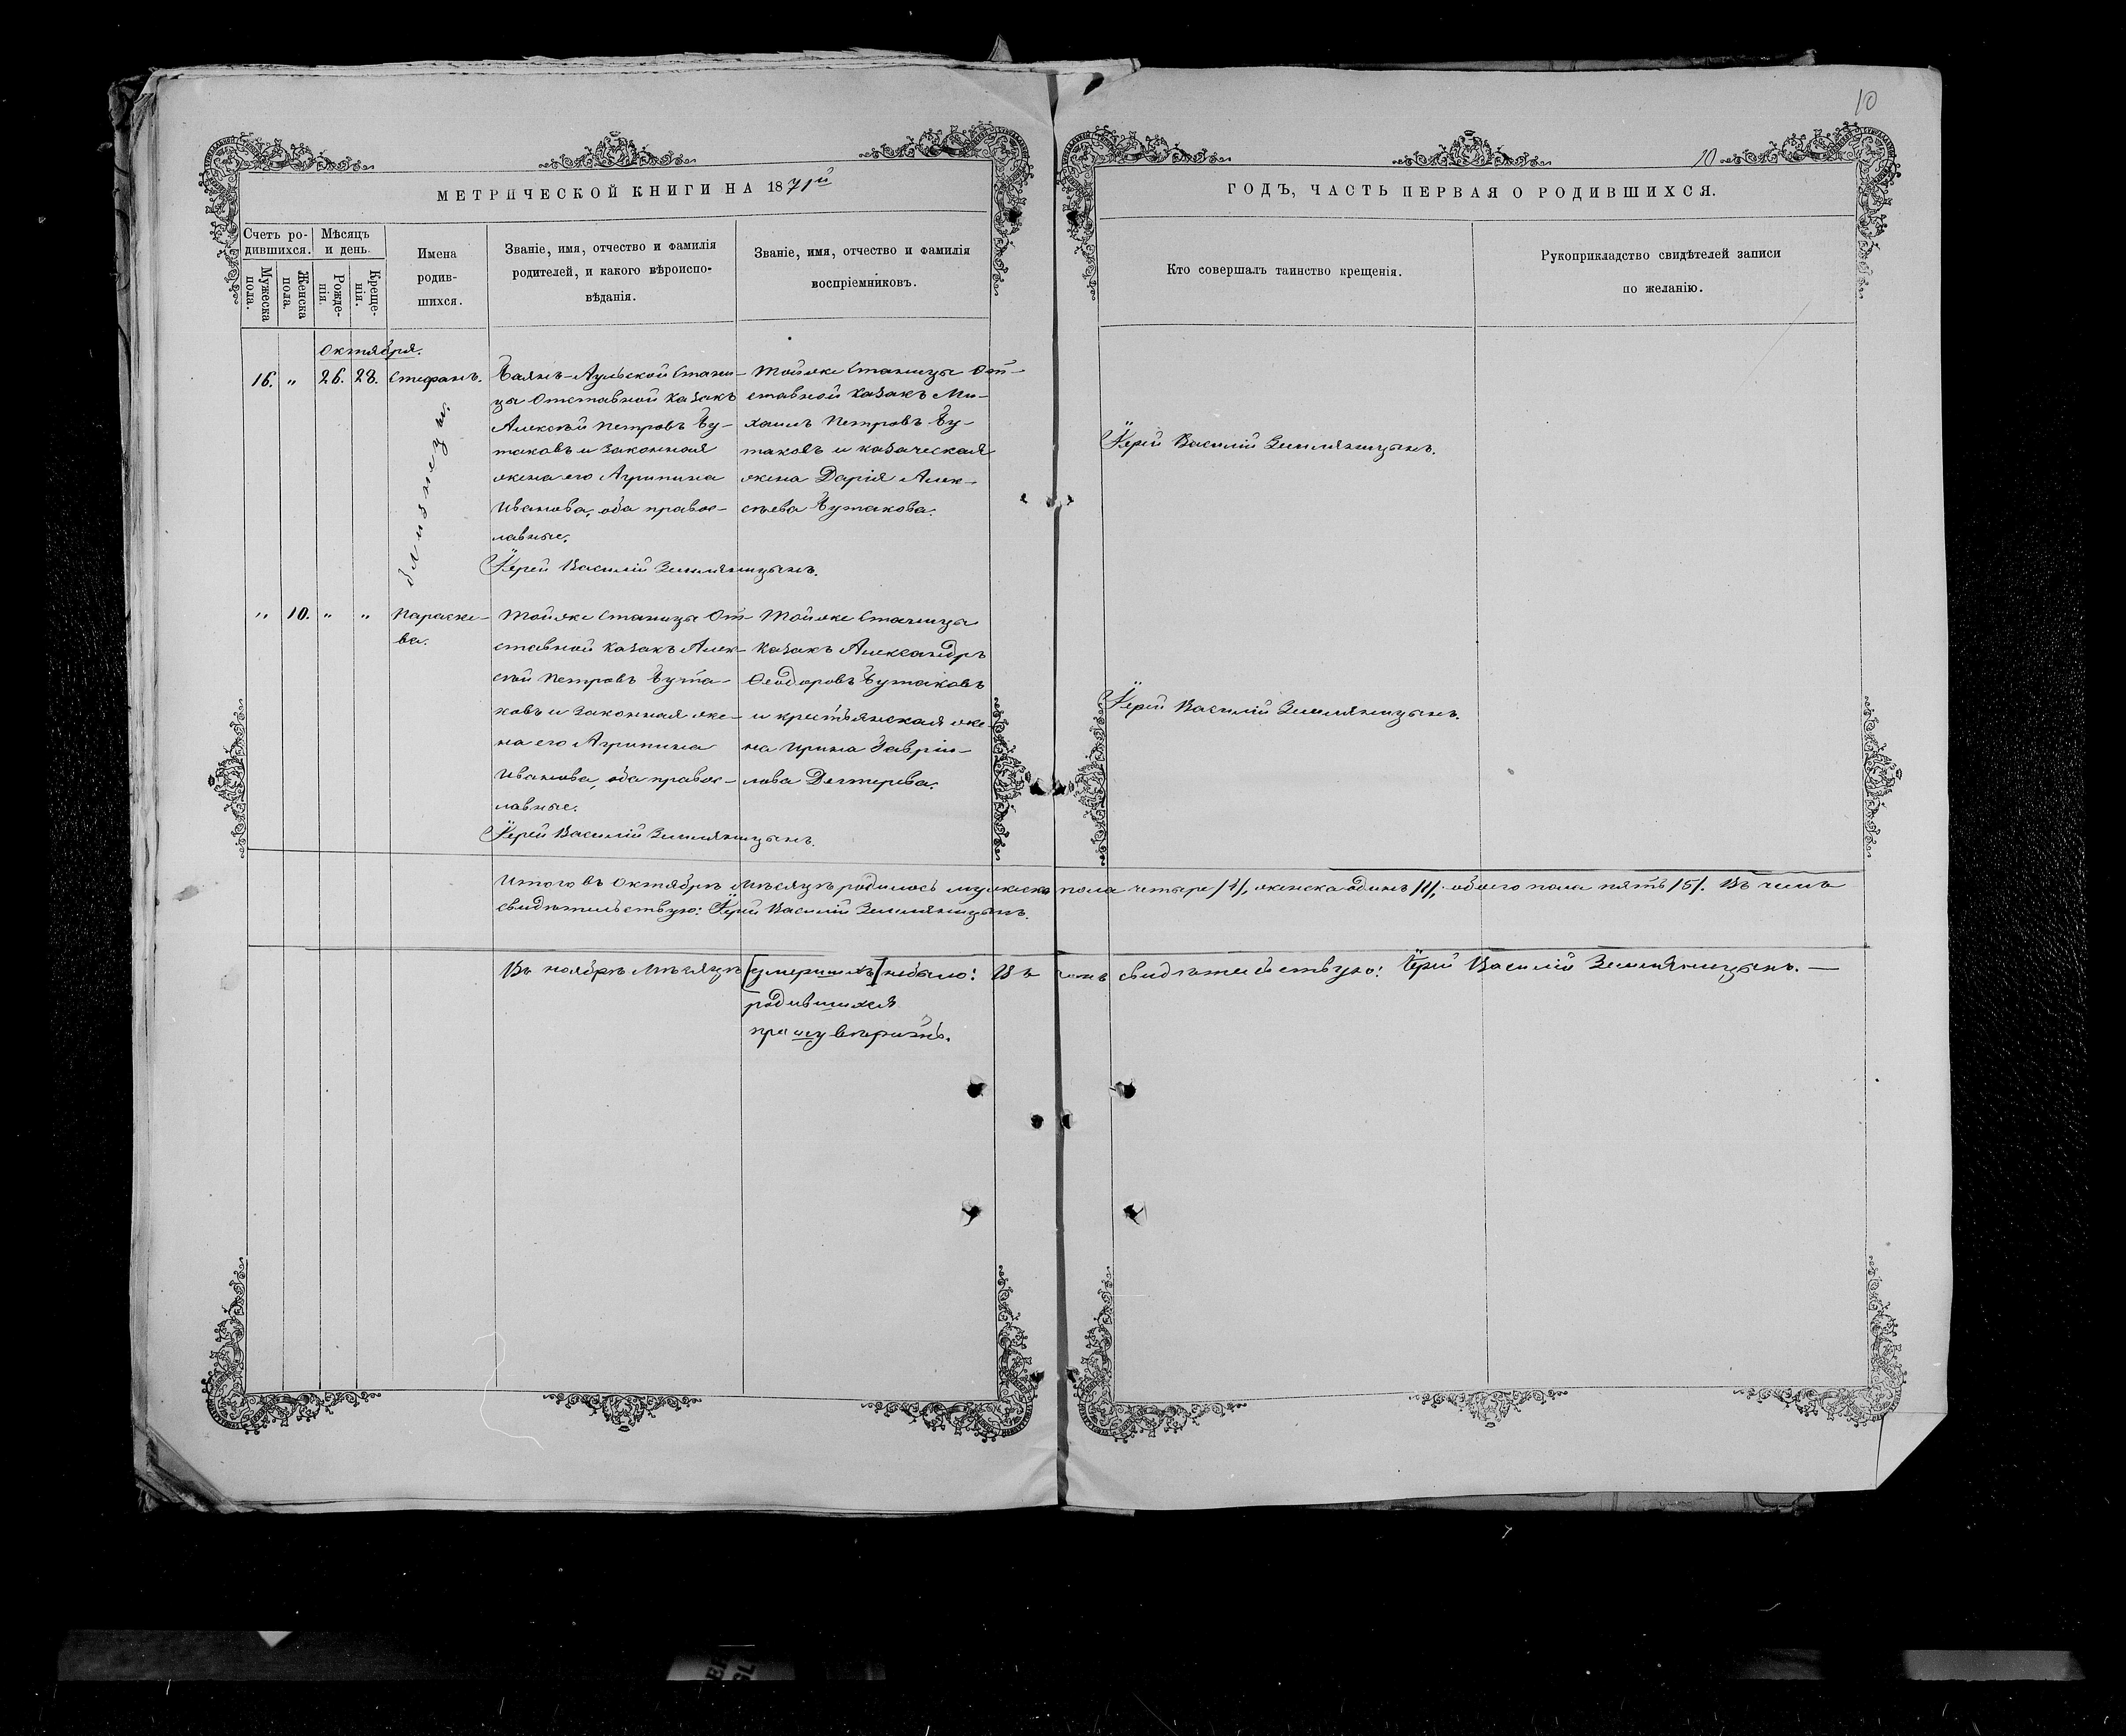 10
10
МЕТРИЧЕСКОЙ КНИГИ НА 1871й
ГОДЪ, ЧАСТЬ ПЕРВАЯ О РОДИВШИХСЯ.
Счетъ ро-
дившихся.
Мужеска пола.
Женска пола
Мѣсяцъ
и день.
Рожде-
нія.
Креще-
нія.
Имена
родив-
шихся.
Званіе, имя, отчество и фамилія
родителей, и какого вѣроиспо-
вѣданія.
Званіе, имя, отчество и фамилія
воспріемниковъ.
Кто совершалъ таинство крещенія.
Рукоприкладство свидѣтелей записи
по желанію.
Октября.
16. " 26. 28. Стефанъ.
близнецы.
Баянъ-Аульской Стани-
цы Отставной Казакъ
Алексѣй Петровъ Бу-
таковъ и законная
жена его Агрипина
Иванова, оба право-
лавные.
Іерей Василій Земляницынъ.
Тойже Станицы От-
ставной Казакъ Ми-
хаилъ Петровъ Бу-
таковъ и казаческая
жена Дарія Алек-
сѣева Бутакова.
Іерей Василій Земляницынъ.
" 10. " " Параске-
ва.
Тойже Станицы От-
ставной Казакъ Алек-
сѣй Петровъ Бута-
ковъ и законная же-
на его Агрипина
Иванова, оба правос-
лавные.
Іерей Василій Земляницынъ.
Тойже Станицы
Казакъ Александръ
Ѳеодоровъ Бутаковъ
и крестьянская же-
на Ирина Гаврiи-
лова Дегтерева.
Іерей Василій Земляницынъ.
Итого въ Октябрѣ мѣсяцѣ родилось мужеска пола четыре /4/, женска одинъ /1/, обоего пола пять /5/. Въ чемъ
свидѣтельствую: Іерей Василій Земляницынъ.
Въ ноябрѣ мѣсяцѣ [умершихъ] небыло: Въ чемъ свидѣтельствую: Іерей Василій Земляницынъ. —
родившихся
прошу вѣрить.